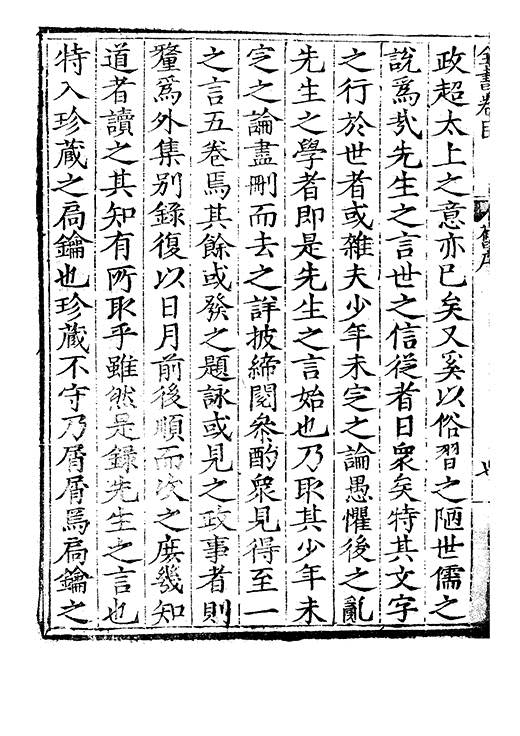 政超太上之意亦已矣又奚以俗習之陋世儒之
說爲㢤先生之言世之信從者日衆矣特其文字
之行於世者或雜夫少年未定之論愚懼後之亂
先生之學者即是先生之言始也乃取其少年未
定之論盡刪而去之詳披締閱叅酌衆見得至一
之言五卷焉其餘或發之題詠或見之政事者則
釐爲外集别録復以日月前後順而次之庶幾知
道者讀之其知有所取乎雖然是録先生之言也
特入珍蔵之扃鑰也珍蔵不守乃屑屑焉扃鑰之